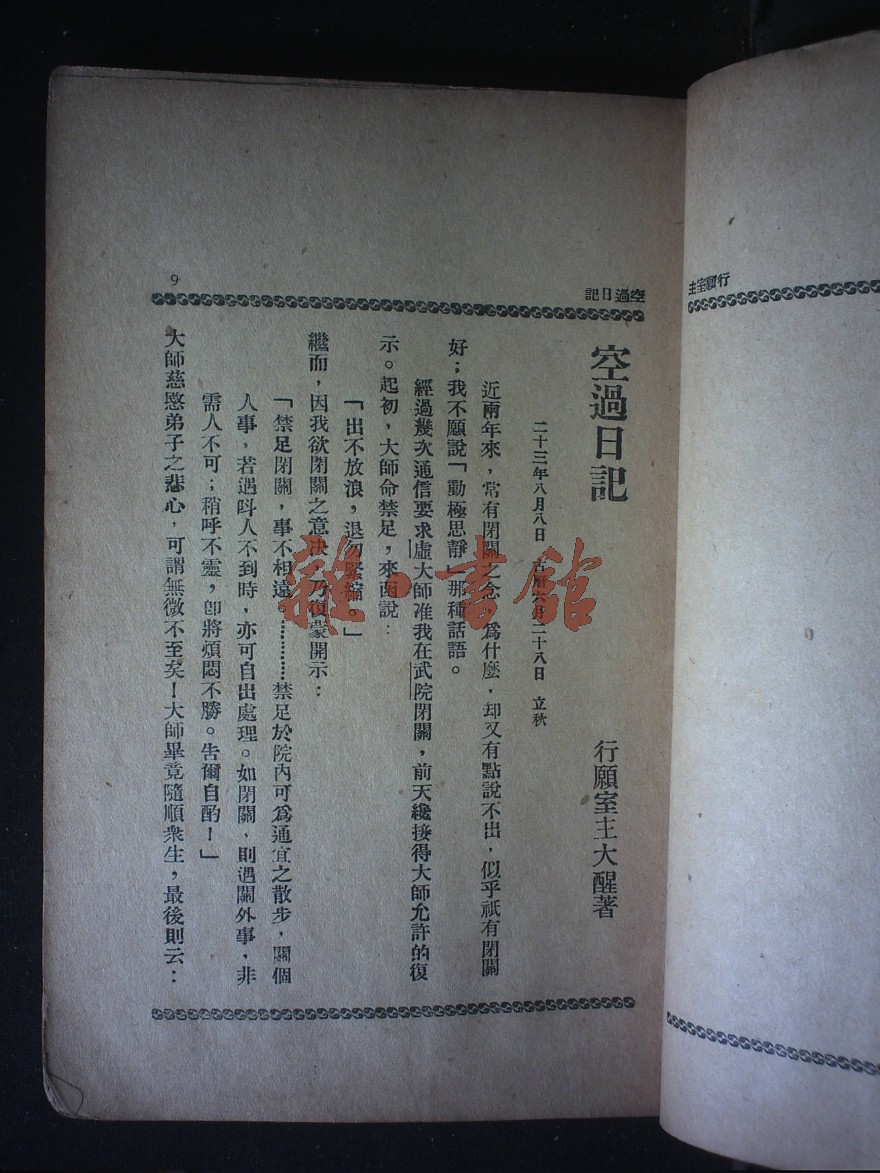 空過日記
9
行願室主
空過日記
行願室主大醒著
二十三年八月八日 古曆六月二十八日 立秋
近兩年來，常有閉關之念，爲什麼，却又有點說不出，似乎祇有閉關
好；我不願說「動極思靜」那種話語。
經過幾次通信要求虛大師准我在武院閉關，前天纔接得大師允許的復
示。起初，大師命禁足，來函說：
「出不放浪，退勿緊縮。」
繼而，因我欲閉關之意决，乃復蒙開示：
「禁足閉關，事不相遠。…………禁足於院內可爲通宜之散步，關個
人事，若遇呌人不到時，亦可自出處理。如閉關，則遇關外事，非
需人不可；稍呼不靈，卽將煩悶不勝。吿爾自酌！」
大師慈愍弟子之悲心，可謂無微不至矣！大師畢竟隨順衆生，最後則云：
雜·書館